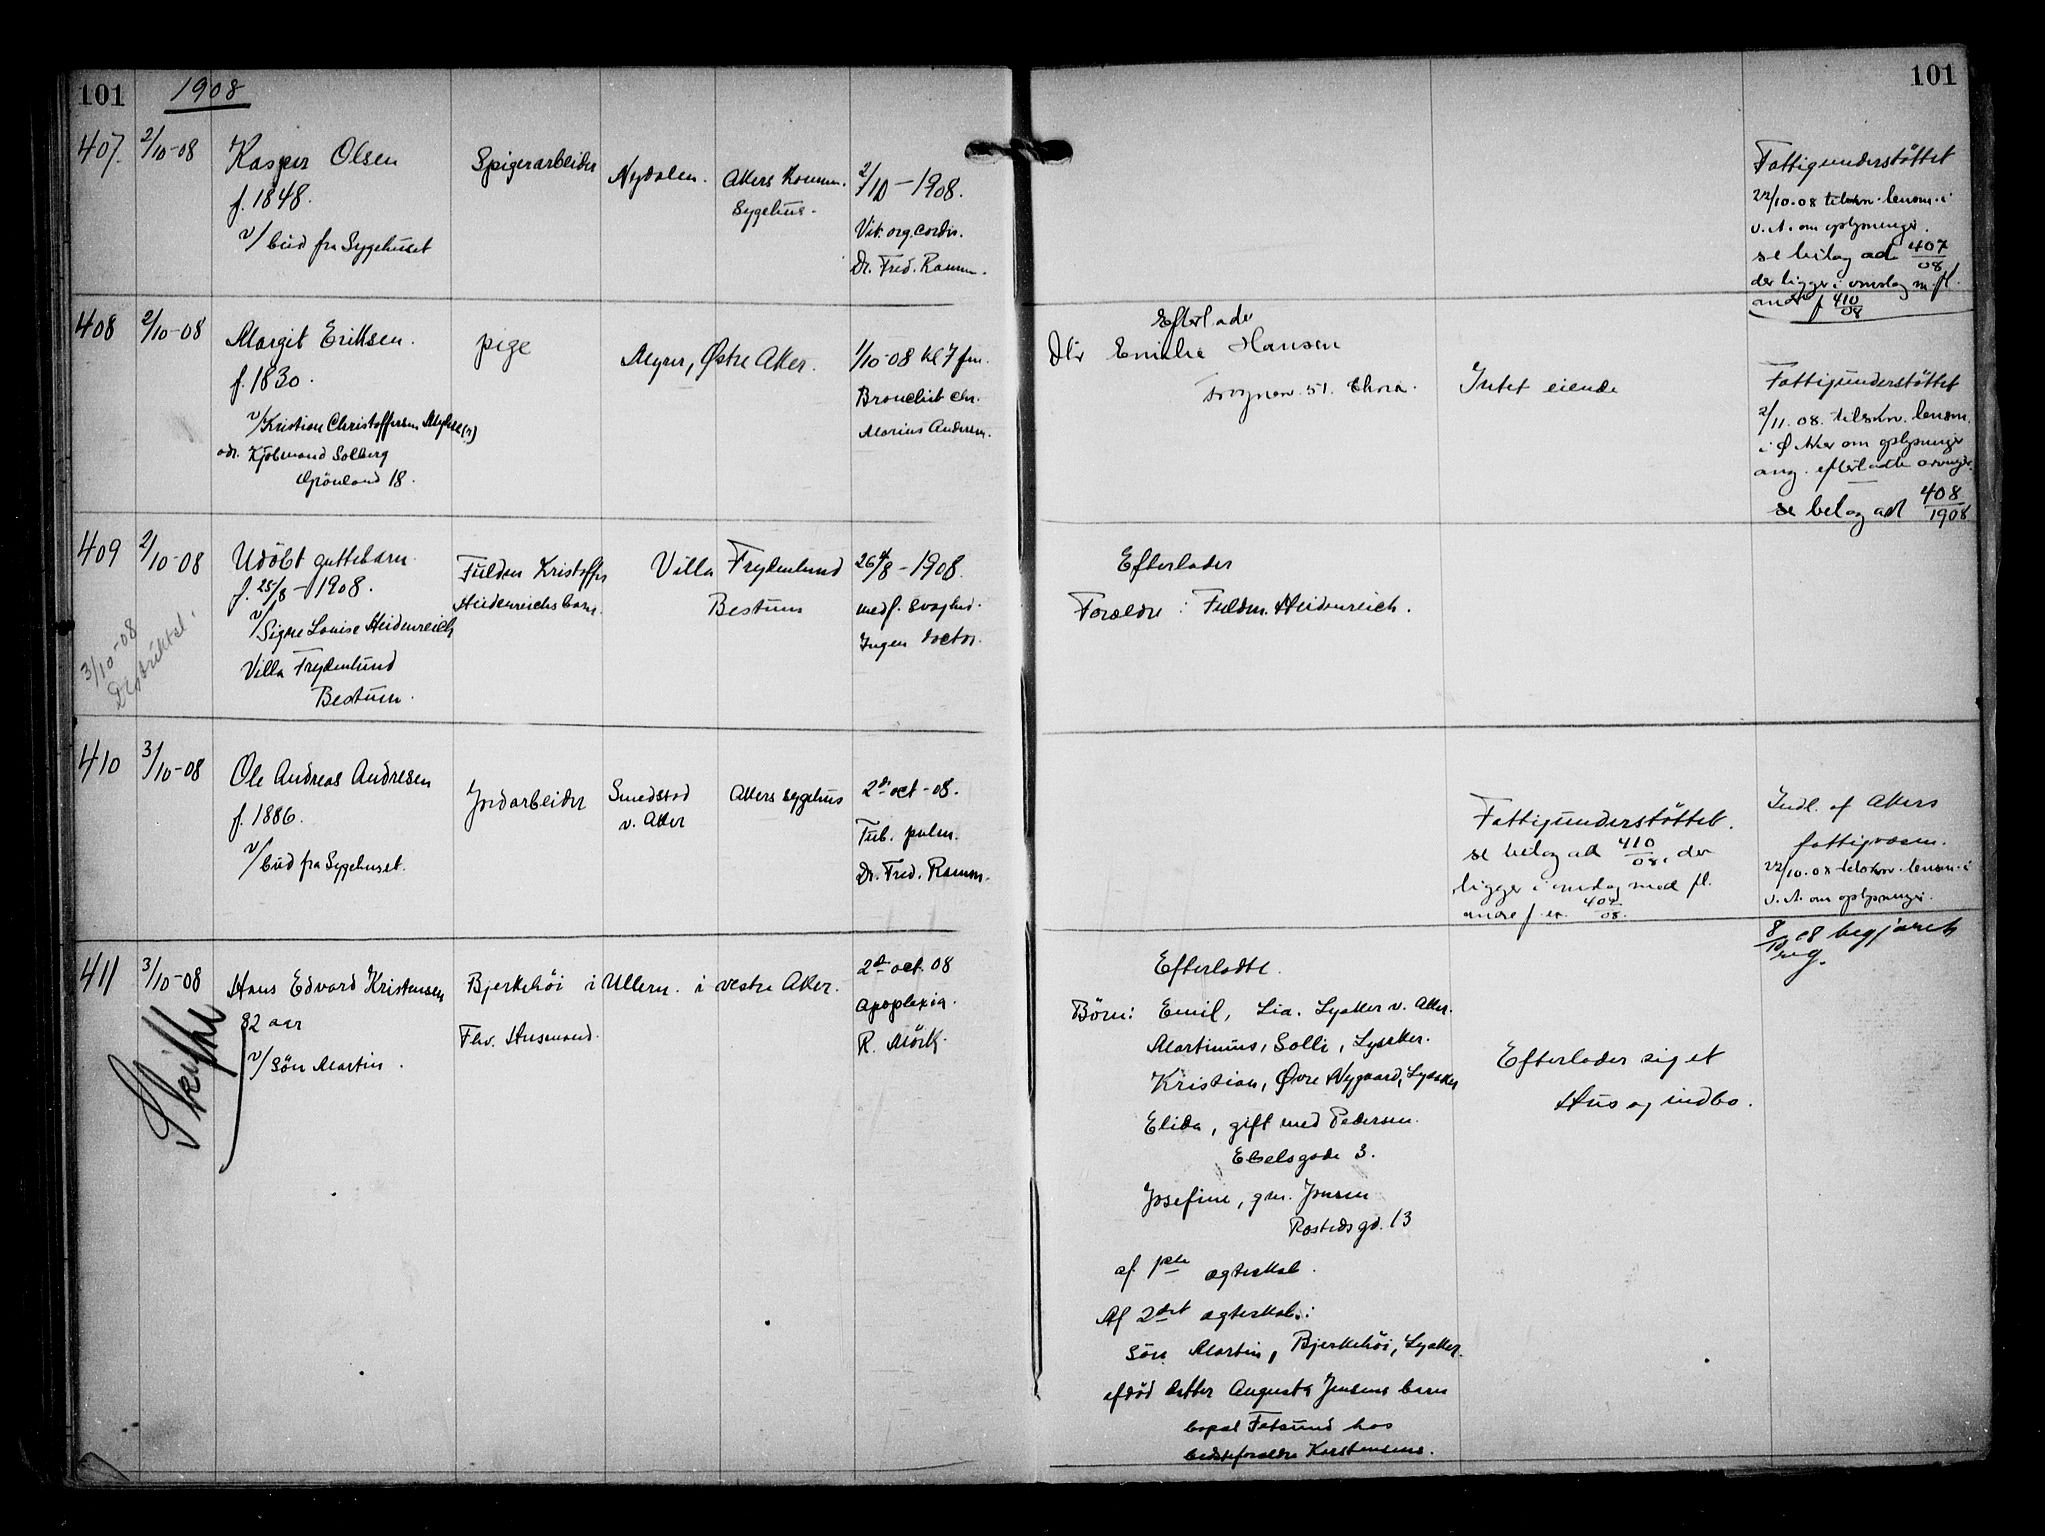 101
1908
101
407. 2/10-08 Kasper Olsen Spigerarbeider Nydalen. Akers Komm.
Sygehus.
f. 1848.
v/ bud fra Sygehuset
2/10-1908.
Vit. org. cordis.
Dr. Fred. Ramm.
Fattigunderstøttet
22/10-08 tilskr. lensm. i
v. A. om oplysninger.
se bilag ad 407/08
der ligger i omslag m. fl.
andre f 410/08
408 2/10-08 Margit Eriksen. pige Myrer, Østre Aker.
f. 1830.
v/ Kristian Christoffersen Myhre(r)
adr. Kjøbmand Solberg
Grönland 18.
1/10-08 kl 7 fm.
Bronchit chr.
Marius Andersen.
Efterlader
Emilie Hansen
51.
Intet eiende
Fattigunderstøttet
2/11.08. tilskr. lensm.
i Ø Aker om oplysninger
ang. efterladte arvinger.
se bilag ad 408/1908
409 2/10-08 Udöbt guttebarn
f. 25/8-1908.
v/ Signe Louise Heidenreich
Villa Frydenlund
Bestum.
3/10-08
Fuldm Kristoffer
Heidenreichs barn.
Villa Frydenlund
Bestum
26/8-1908.
medf. svaghed.
Ingen doctor.
Efterlader
Foreldre: Fuldm. Heidenreich.
410 3/10-08 Ole Andreas Andresen
f. 1886.
v/ bud fra Sygehuset.
Jordarbeider
Smedstad
v. Aker
Akers sygehus
2den oct-08.
Tub. pulm.
Dr. Fred. Ramm.
Fattigunderstøttet.
se bilag ad 410/08, der
ligger i omslag med fl.
andre f. ex. 407/08.
Indl. af Akers
fattigvæsen.
22/10.08 tilskr. lensm. i
v. A. om oplysninger.
411 3/10-08 Hans Edvard Kristensen
82 aar
v/ Sön Martin.
Skifte
Bjerkehöi i Ullern. i vestre Aker.
Fhv. Husmand.
2den oct. 08
Apoplexia.
R. Mörk.
8/10 08 begjæret
reg.
Efterladte.
Börn: Emil, Lia. Lysaker v. Aker.
Martinius, Solli, Lysaker.
Kristian, Øvre Nygaard, Lysaker
Elida, gift med Pedersen.
Ebelsgade 3.
Josefine, gm. Jensen
Rostedsgd. 13
af 1ste ægteskab.
Af 2det ægteskab:
Sön Martin, Bjerkehöi, Lysaker.
afdöd datter Augusta Jensens barn
bopæl Fetsund hos
bedsteforældre Karstensens.
Efterlader sig et
Hus og indbo.